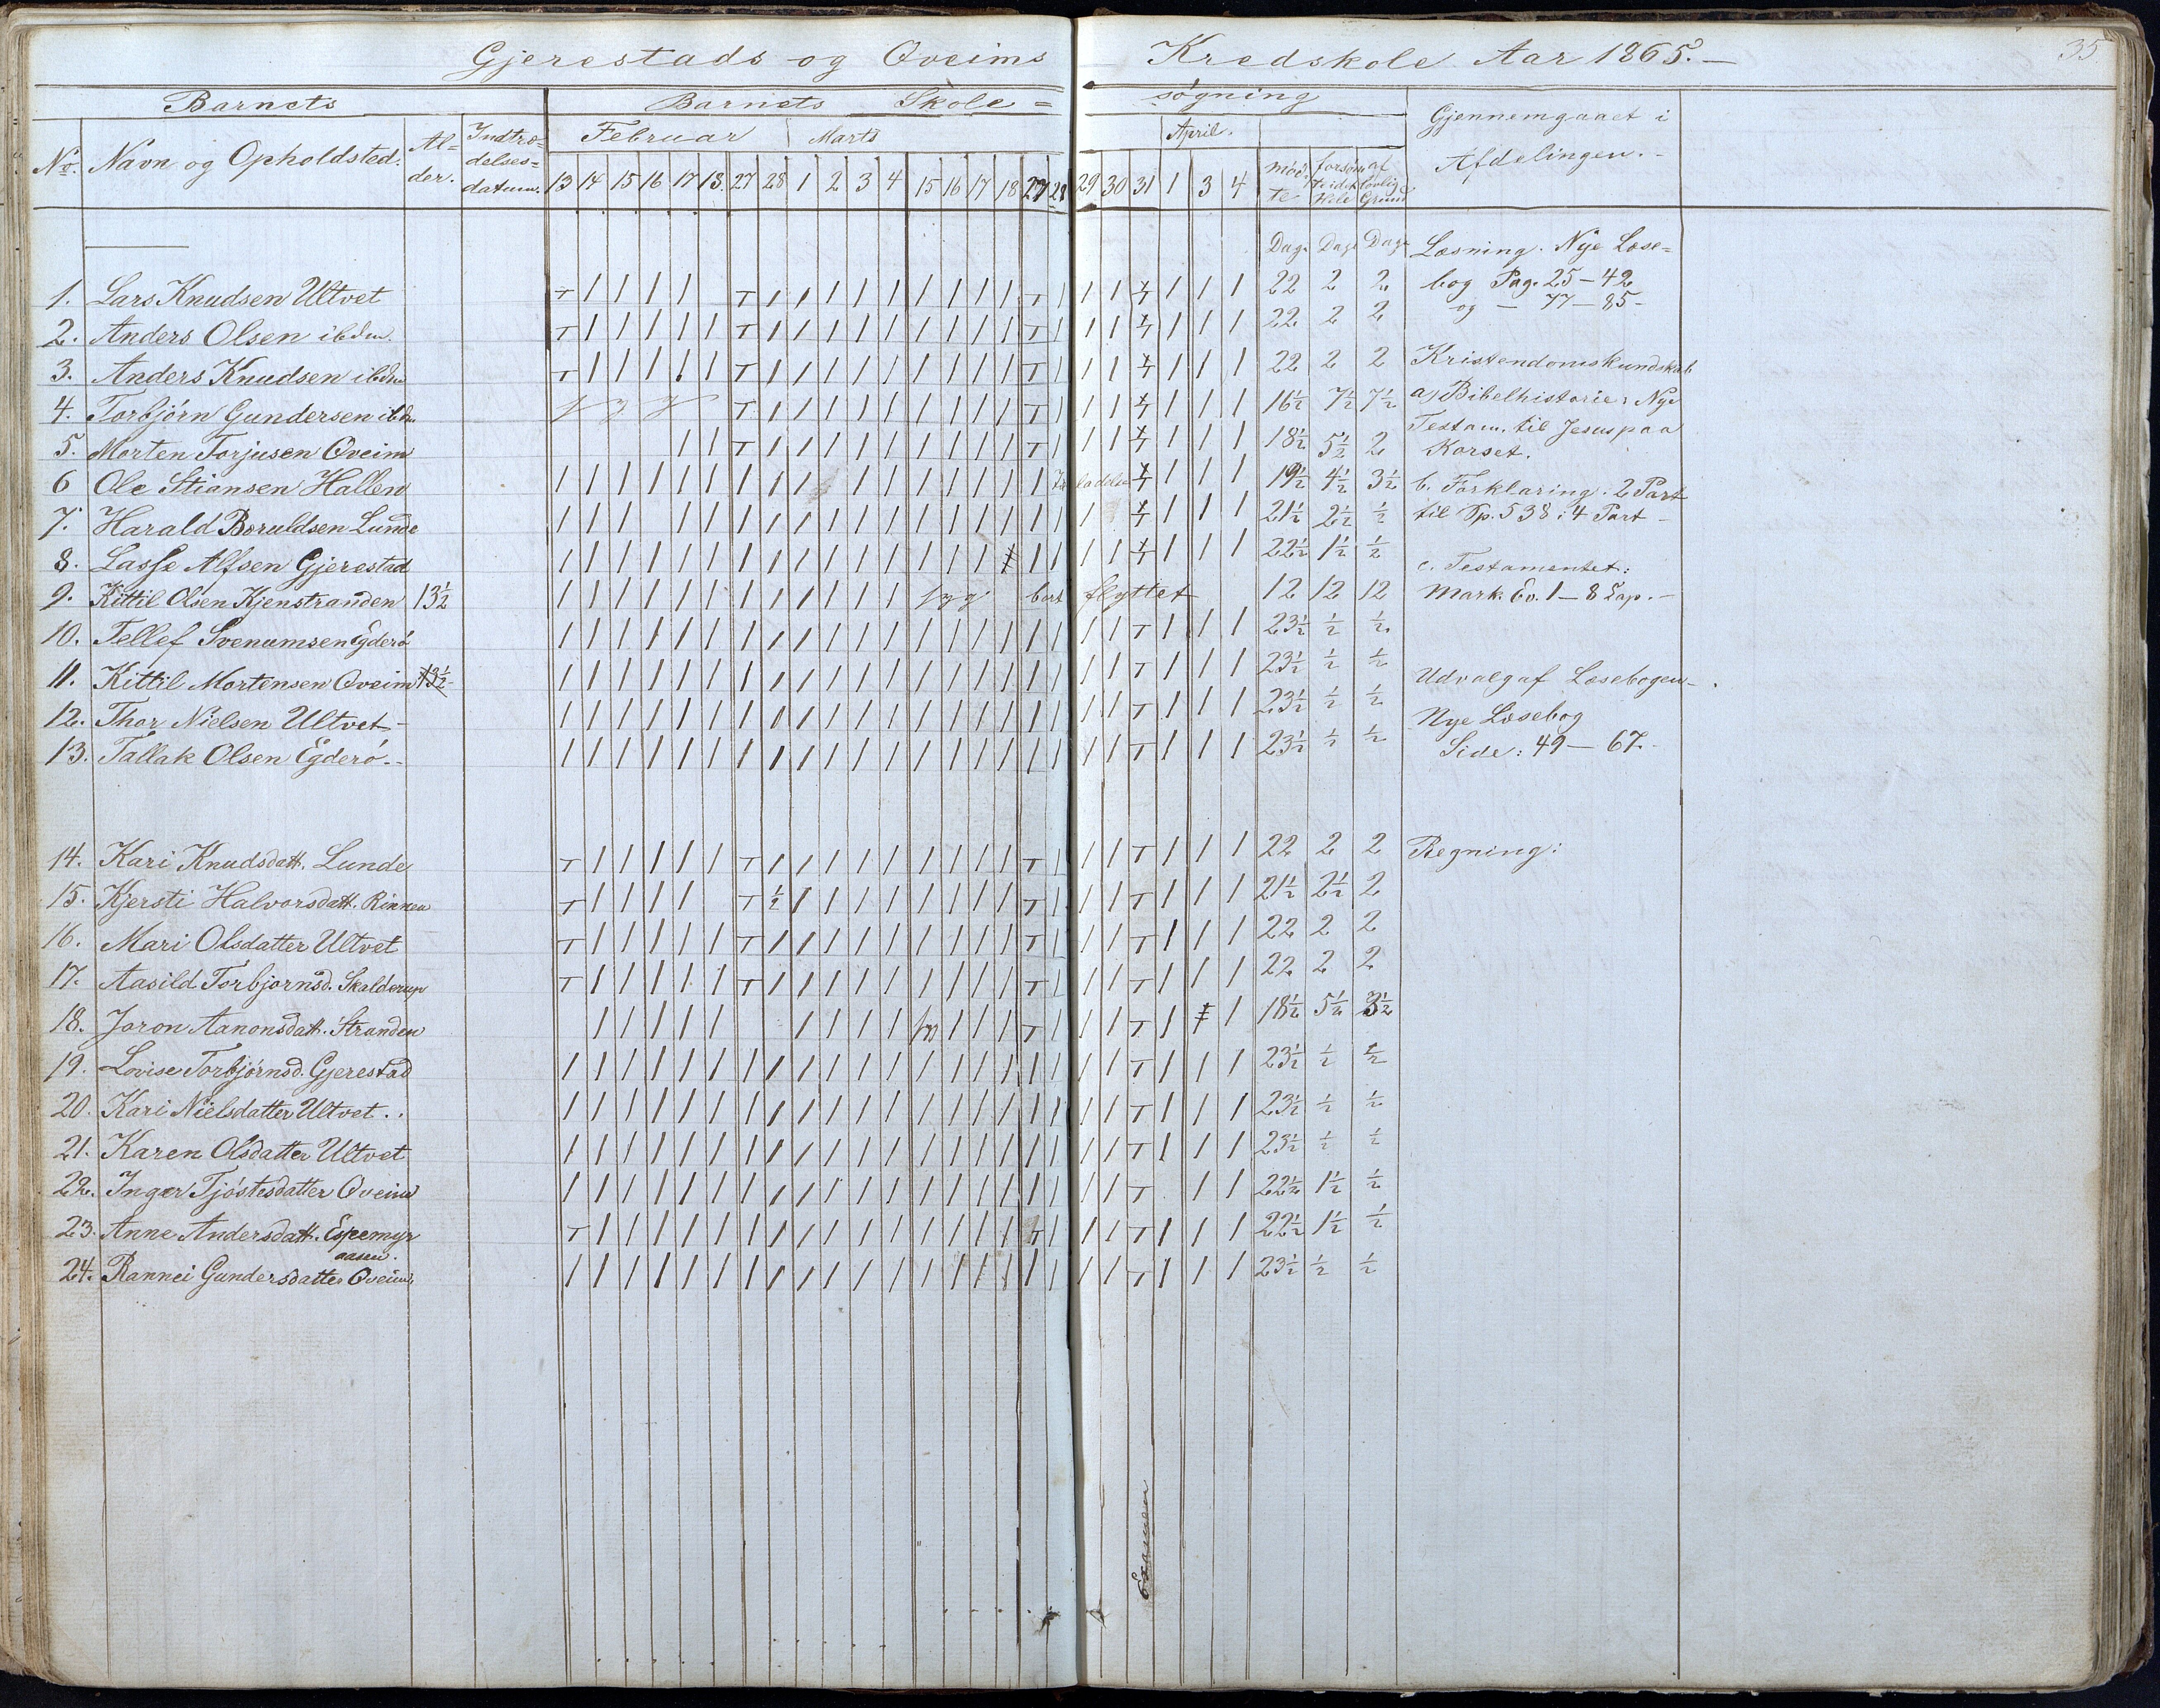 Gjerestads og Oveims Kredskole Aar 1865.
35
Barnets
Barnets Skole=søgning
Gjennemgaaet i Afdelingen.
No. Navn og Opholdsted. Al=der. Indtræ=delses=datum.
Februar Marts April.
13 14 15 16 17 18 27 28 1 2 3 4 15 16 17 18 27 28 29 30 31 1 3 4 mød=te forsømt Hele af lovlig Grund
Dage Dage Dage
1. Lars Knudsen Ultvet 22 2 2
2. Anders Olsen ibdm. 22 2 2
3. Anders Knudsen ibdm 22 2 2
4. Torbjørn Gundersen ibdm 16½ 7½ 7½
5. Morten Torjusen Oveim 18½ 5½ 2
6 Ole Stiansen Hallen 19½ 4½ 3½
7. Harald Boruldsen Lunde 21½ 2½ ½
8. Lasse Alfsen Gjerestad 22½ 1½ ½
9. Kittil Olsen Kjenstranden 13½ syg bort flyttet 12 12 12
10. Tellef Svenumsen Egderø 23½ ½ ½
11. Kittil Mortensen Oveim 13½ 23½ ½ ½
12. Thor Nielsen Ultvet 23½ ½ ½
13. Tallak Olsen Egderø 23½ ½ ½
14. Kari Knudsdatt. Lunde 22 2 2
15. Kjersti Halvorsdatt. Rinnen ½ 21½ 2½ 2
16. Mari Olsdatter Ultvet 22 2 2
17. Aasild Torbjornsd. Skalderup 22 2 2
18. Joron Aanonsdatt. Stranden syg 18½ 5½ 3½
19. Lovise Torbjørnsd. Gjerestad 23½ ½ ½
20. Kari Nielsdatter Ultvet 23½ ½ ½
21. Karen Olsdatter Ultvet 23½ ½ ½
22. Inger Tjøstesdatter Oveim 22½ 1½ ½
23. Anne Andersdatt. Espemyr aasen. 22½ 1½ ½
24. Rannei Gundersdatter Oveim 23½ ½ ½
Læsning. Nye Læse=
bog Pag. 25–42
og – 77–85–
Kristendomskundskab
a) Bibelhistorie: Nye
Testam. til Jesus paa
Korset.
b. Forklaring. 2 Part
til Sp. 538 i 4 Part
c. Testamentet:
Mark. Ev. 1–8 Cap.
Udvalg af Læsebogen
Nye Læsebog
Side: 49–67.
Regning:
Examen